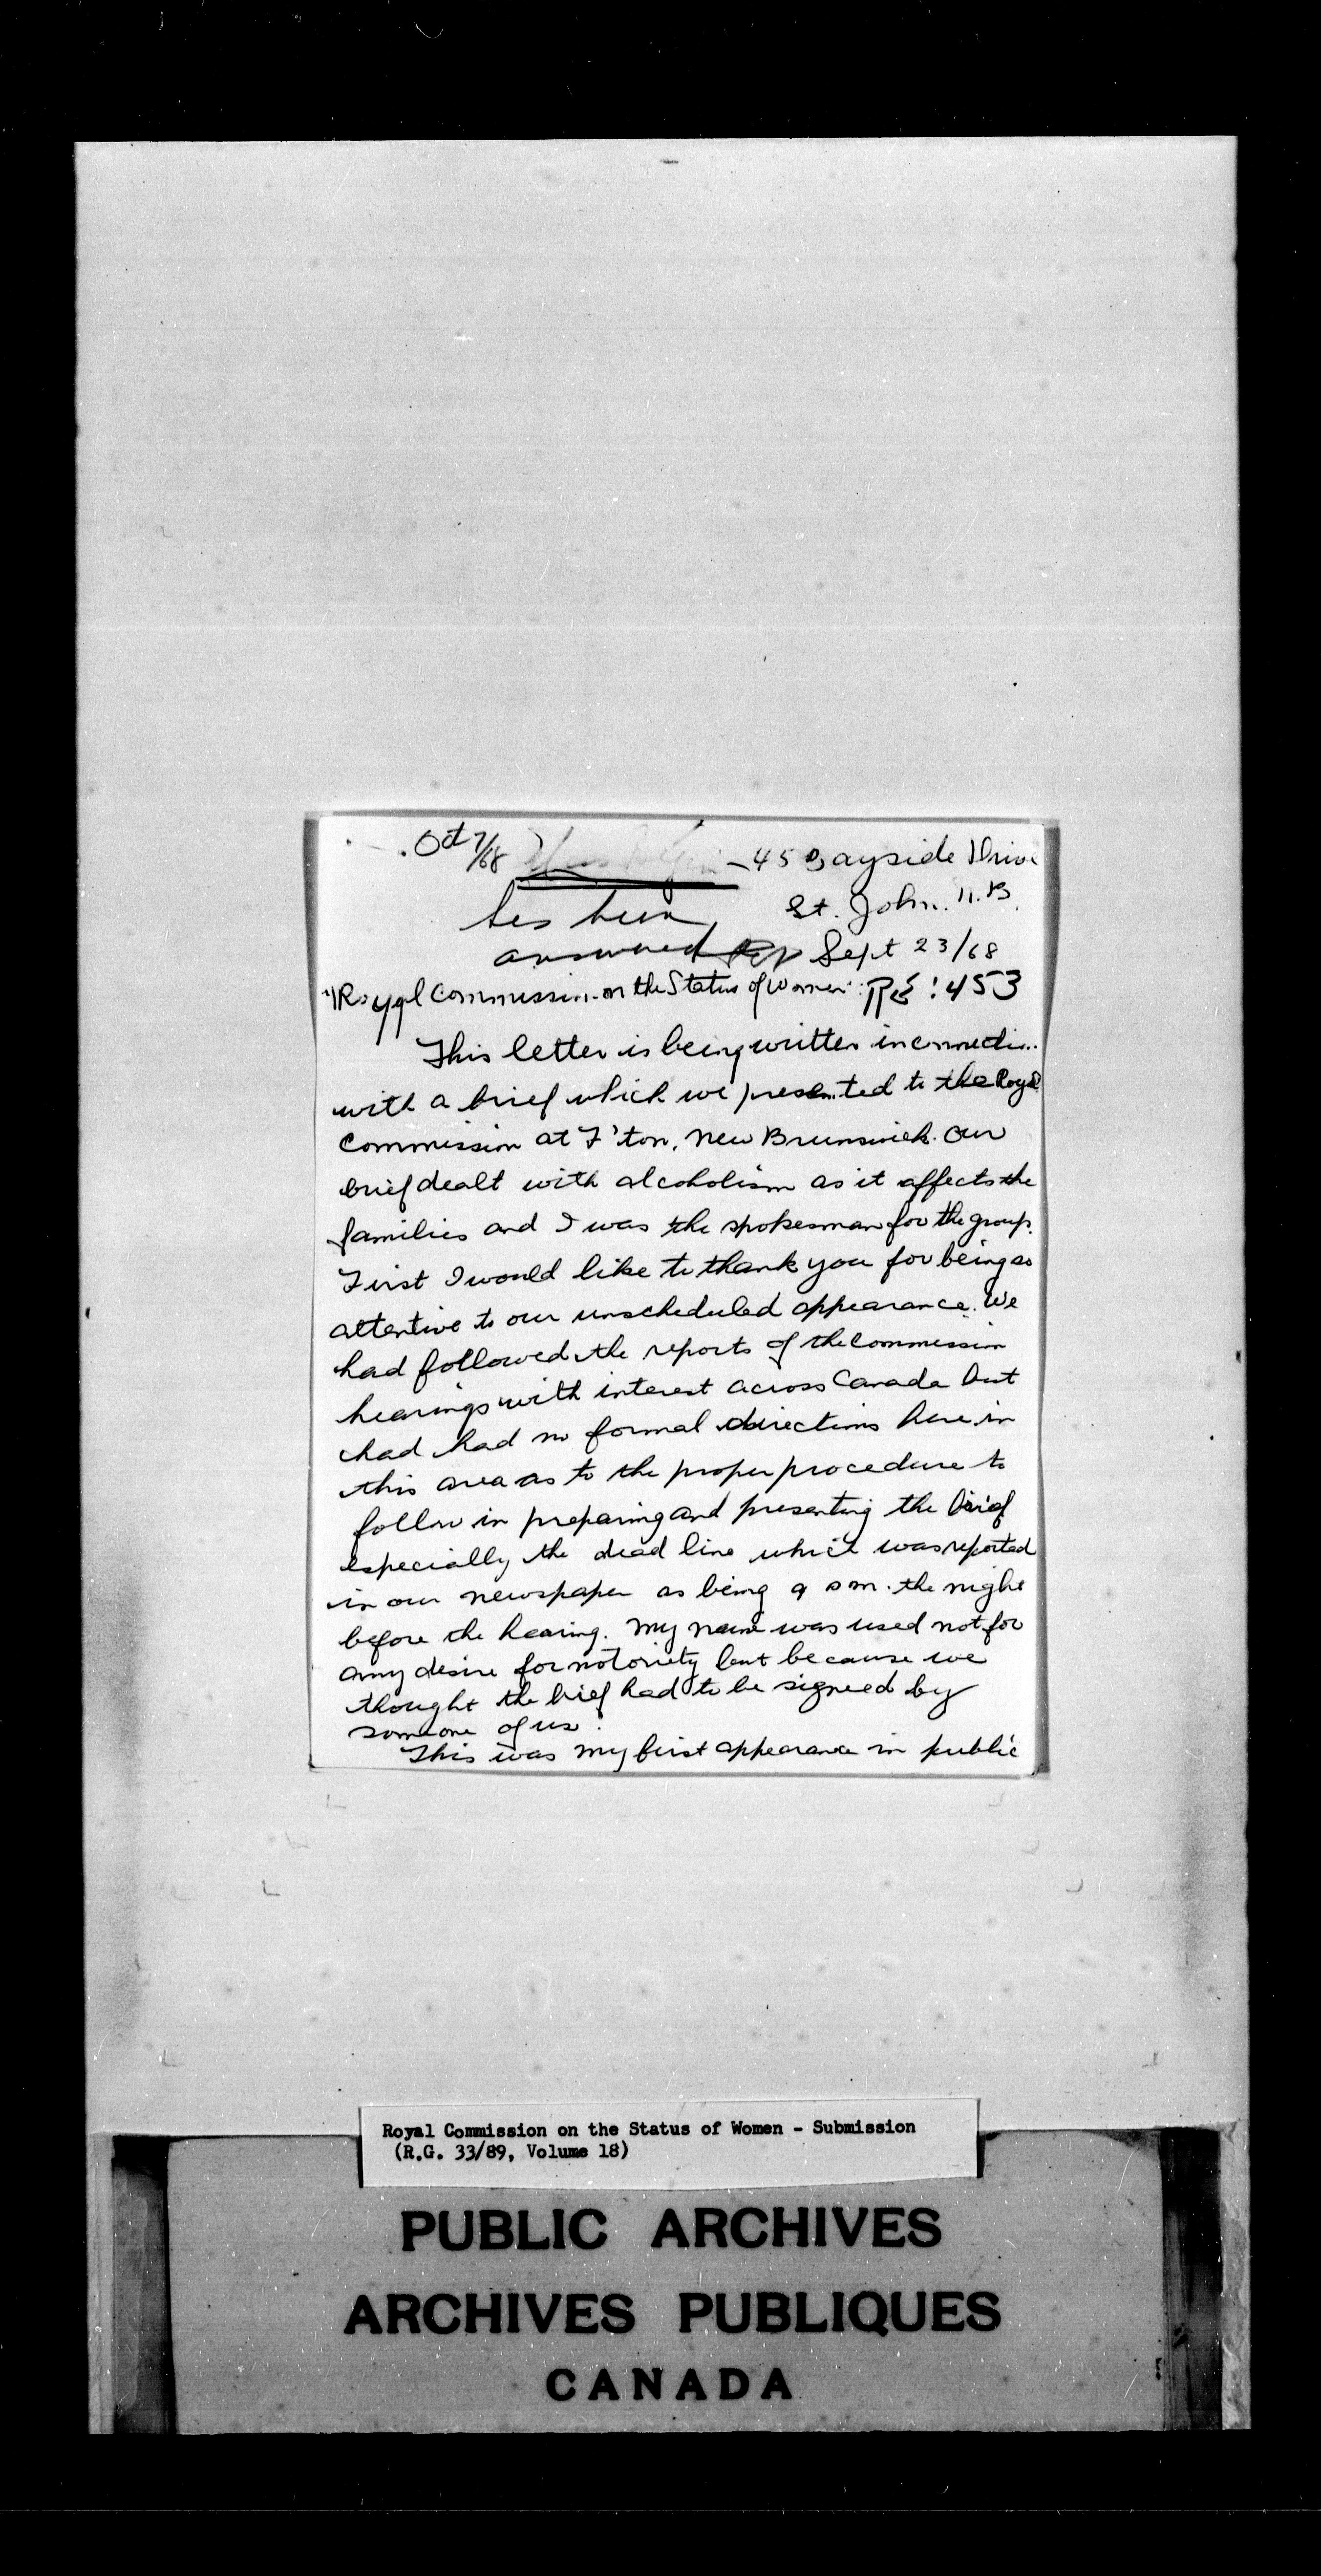 Oct 7/68
45 Bayside Drive
St. John. N.B.
has been
answered
Sept 23/68
Royal Commission on the Status of Women: RE: 453
This letter is being written in connection
with a brief which we presented to the Royal
Commission at F'ton, New Brunswick. Our
brief dealt with alcoholism as it affects the
families and I was the spokesman for the group.
First I would like to thank you for being so
attentive to our unscheduled appearance. We
had followed the reports of the Commission
hearings with interest across Canada but
had had no formal directions here in
this area as to the proper procedure to
follow in preparing and presenting the brief
especially the dead line which was reported
in our newspaper as being 9 pm. the night
before the hearing. My name was used not for
any desire for notoriety but because we
thought the brief had to be signed by
someone of us.
This was my first appearance in public
Royal Commission on the Status of Women - Submission
(R.G. 33/89, Volume 18)
PUBLIC ARCHIVES
ARCHIVES PUBLIQUES
CANADA